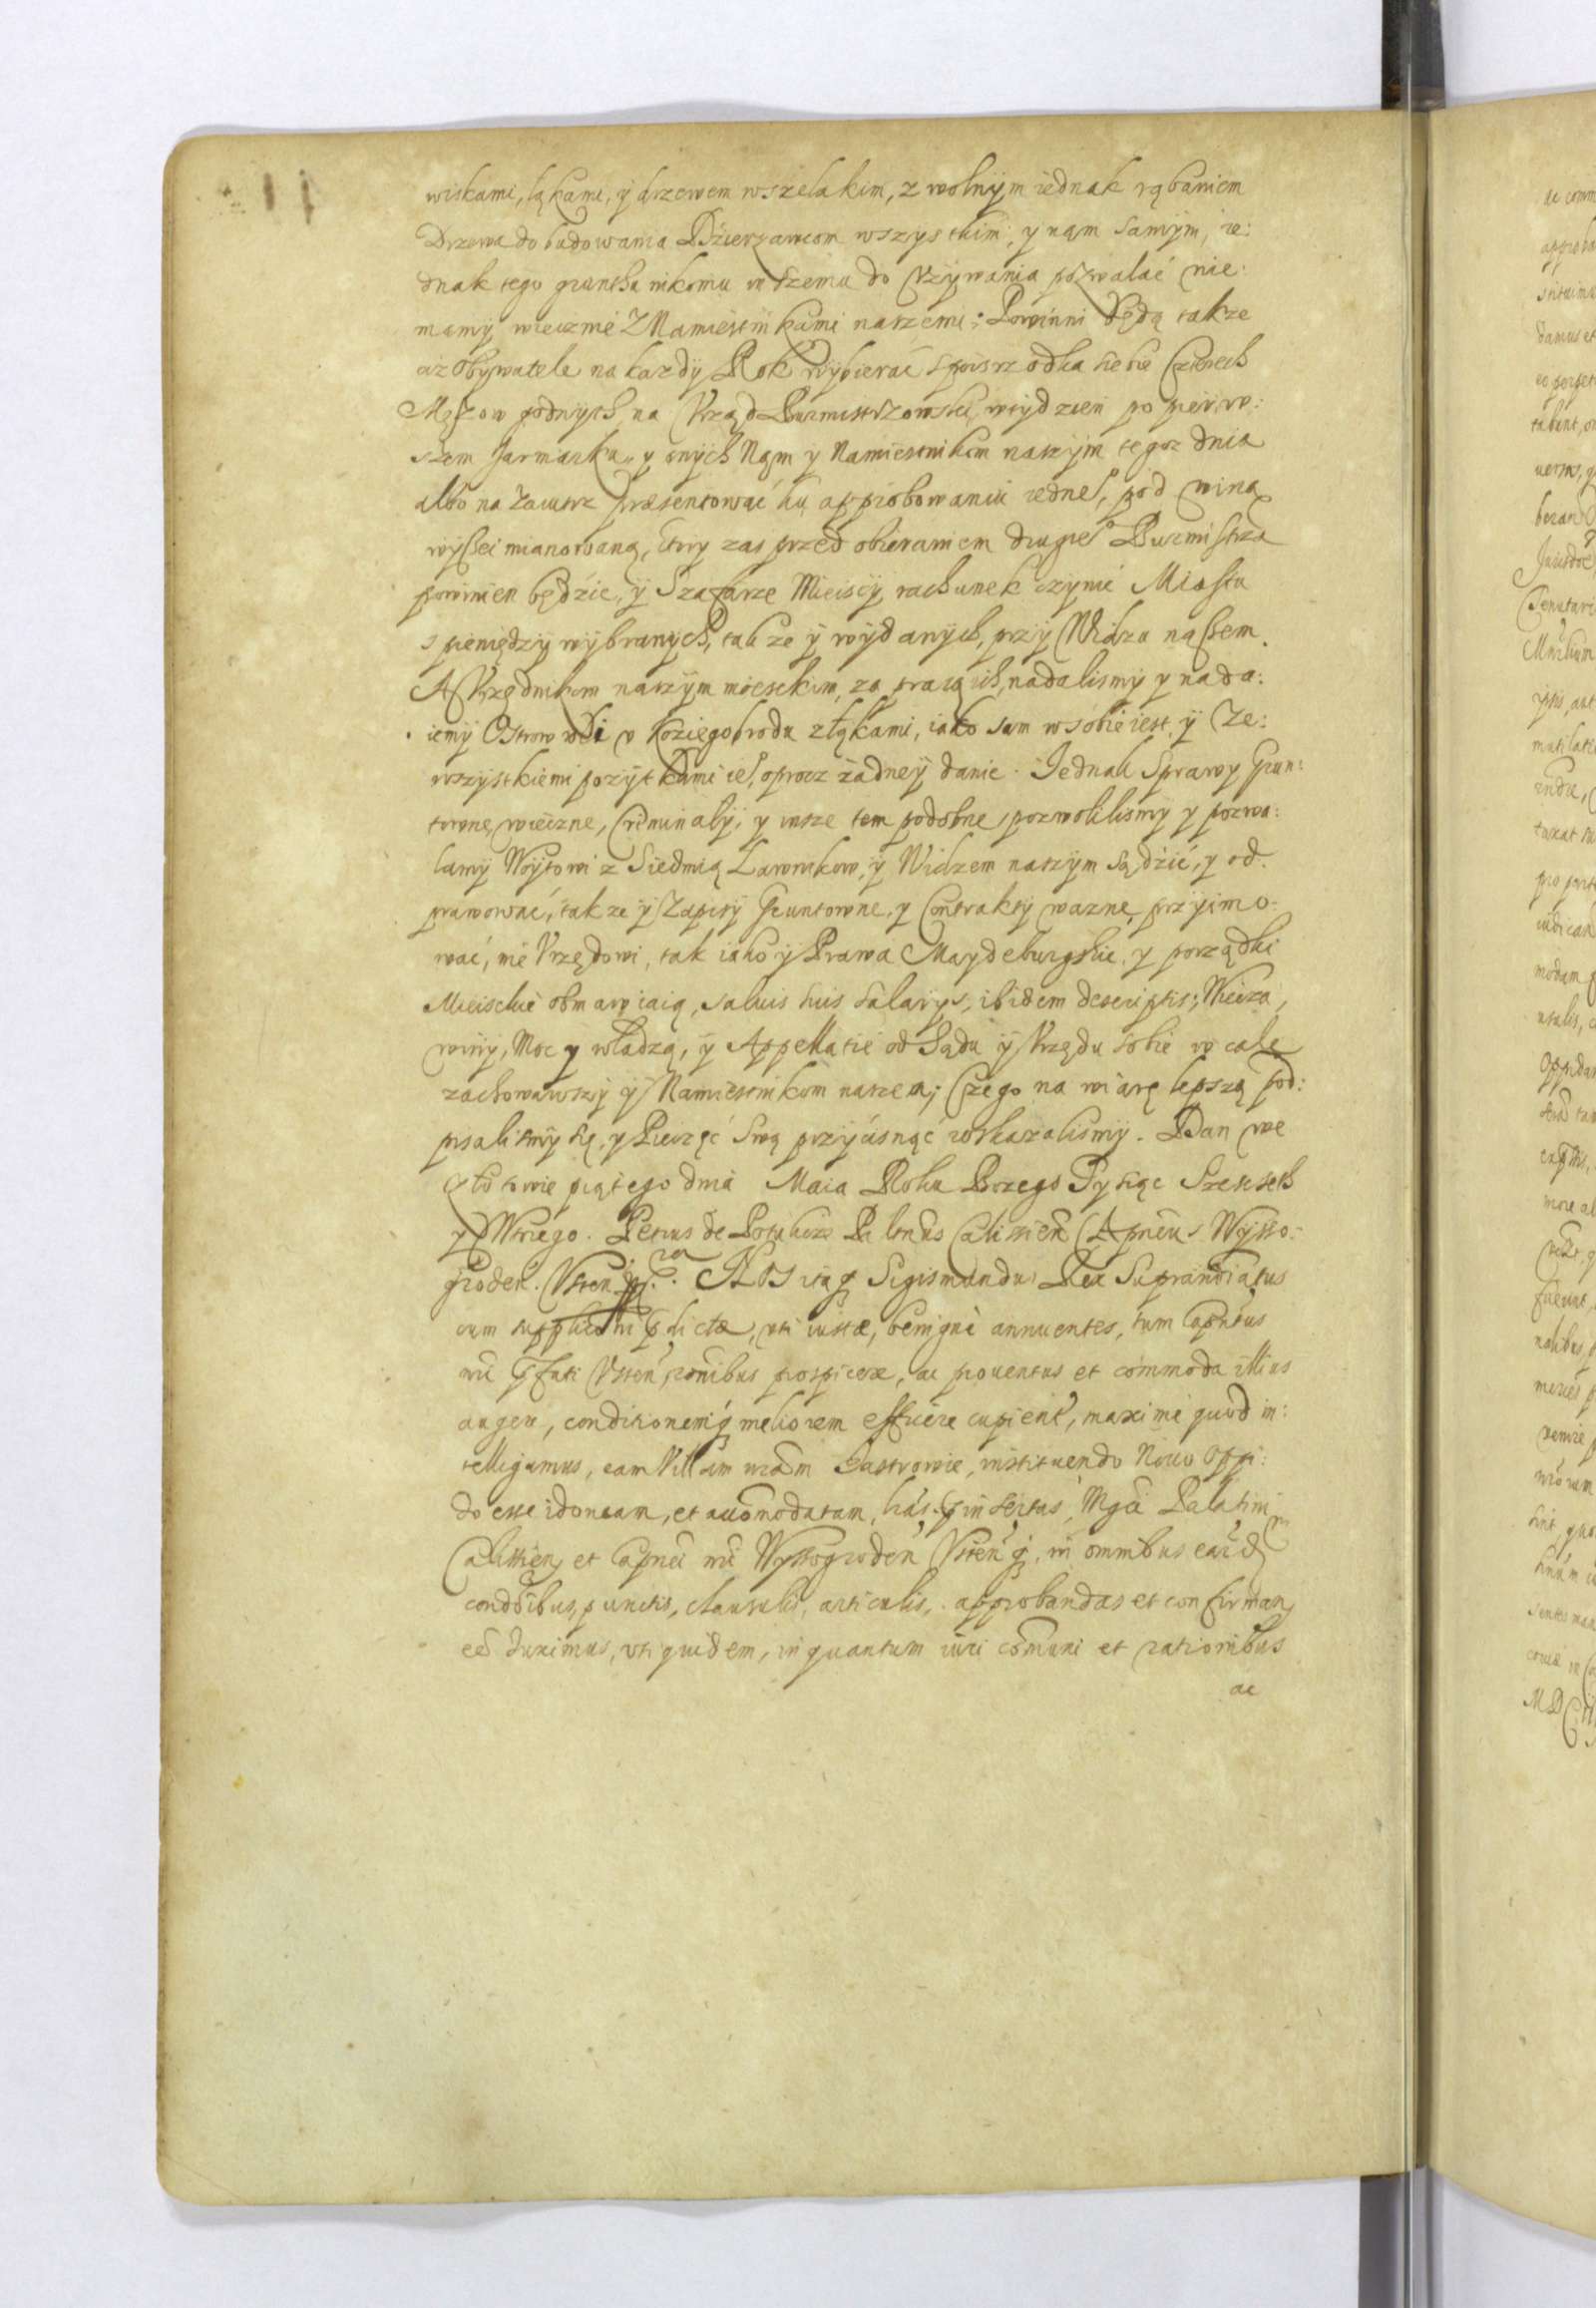 wiskami, łąkami, ÿ drzewem wszelakim, z wolnÿm iednak rąbaniem
Drzewa do budowania Dzierzawcom wszystkim, y nąm samÿm, ie:
dnak tego gruntha nikomu inszemu do vżywania pozwalać nie:
mamÿ wiecznie z Namiestnikami naszemi; Powinni będą takze
ciż obÿwatele na kazdÿ Rok wÿbierać spośrzodka siebie Cżterech
Męzow godnÿch na Vrząd Burmistrzowski, wtÿdzień po pierw:
szem Jarmarku, y onÿch Nąm y Namiestnikom naszÿm tegoz dnia
albo na zaiutrz præsentować ku approbowaniu iedne°, pod winą
wÿssei mianowaną, ktory zas przed obieraniem drugie° Burmistrza
powinien będzie, ÿ Szafarze Mieiscÿ rachunek czynić Miastu
s pieniędzÿ wÿbranÿch, tak ze ÿ wÿdanÿch, przÿ Widzu nassem.
A Vrzędnikom naszÿm mieskim, za pracą ich, nadalismÿ y nada:
iemÿ Ostrow v Koziegobrodu z łąkami, iako sam w sobie iest, ÿ ze:
wszÿstkiemi pozÿtkami ie°, oprocz żadneÿ danie. Jednak Sprawy Grun:
towne, wieczne, Criminalÿ, y insze tem podobne, pozwolilismy y pozwa:
lamÿ Woÿtowi z Siedmią Ławnikow, ÿ Widzem naszÿm sądzić, y od:
prawować, tak ze ÿ Zapisÿ Gruntowne, y Contraktÿ wazne przÿimo:
wać, nie Vrzędowi, tak iako ÿ Prawa Maÿdeburgskie, y porządki
Mieiskie obmawiaią, saluis suis salarÿs, ibidem descriptis; Wieza,
winÿ, Moc y władzą, ÿ Appellatie od Sądu ÿ Vrzędu sobie w cale
zachowawszÿ ÿ Namiestnikom naszem; Czego na wiarę lepszą pod:
pisalismÿ się, y Pieczęć swą przÿcisnąć roskazalismÿ. Dan we
Złotowie piątego dnia Maia Roku Bozego Tysiąc Szesceth
y Wtorego. Petrus de Potulicze Paltnus Calissien Capneus Wysso:
groden. Vsten q. NOS itaq Sigismundus Rex Suprandiatus
cum supplicaoni pdictæ, vti iustæ, benigne annuentes, tum Capntus
nri pfati Vsten, raonibus prospicere, ac prouentus et commoda illius
augere, conditionemq meliorem efficere cupientes, maxime quod in:
telligamus, eam Villam nram Jastrowie, instituendo Nouo Oppi:
do esse idoneam, et accomodatam, lras pinsertas, Mgci Palatini
Calissien, et Capnei nri Wyssogroden Vsten q, in omnibus earum
condonibus, punctis, clausulis, articulis, approbandas et confirman
esse duximus, vti quidem, inquantum iuri comuni et rationibus
ac